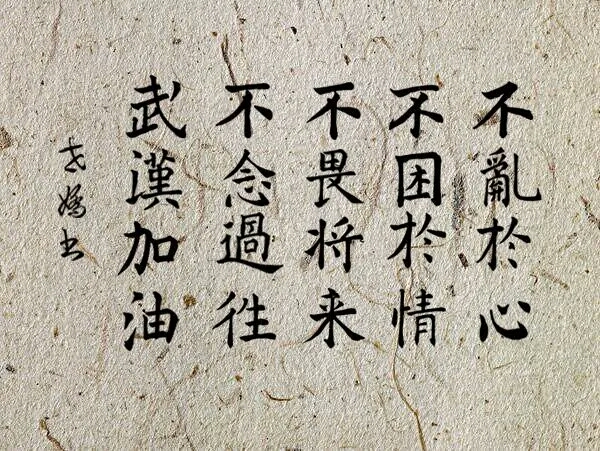 不亂於心
不困於情
不畏将来
不念過往
武漢加油